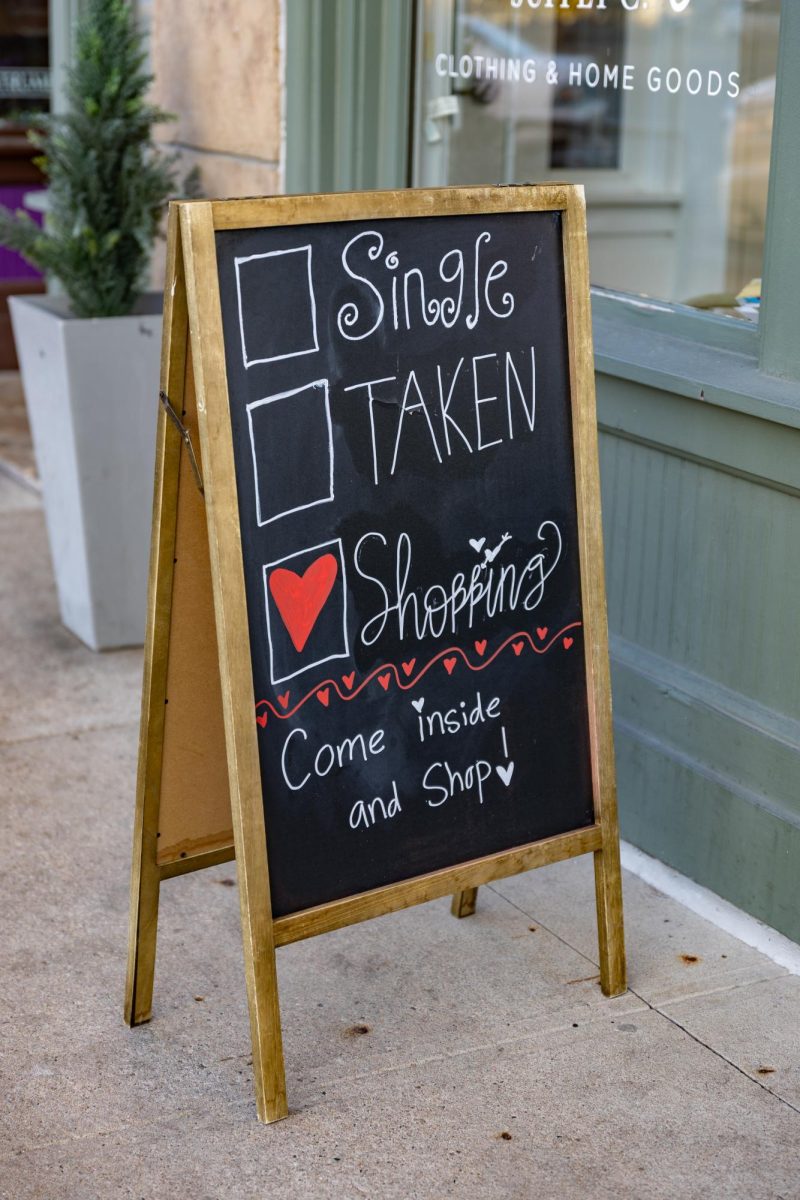 CLOTHING & HOME GOODS
Single
TAKEN
Shopping
Come inside
and Shop!